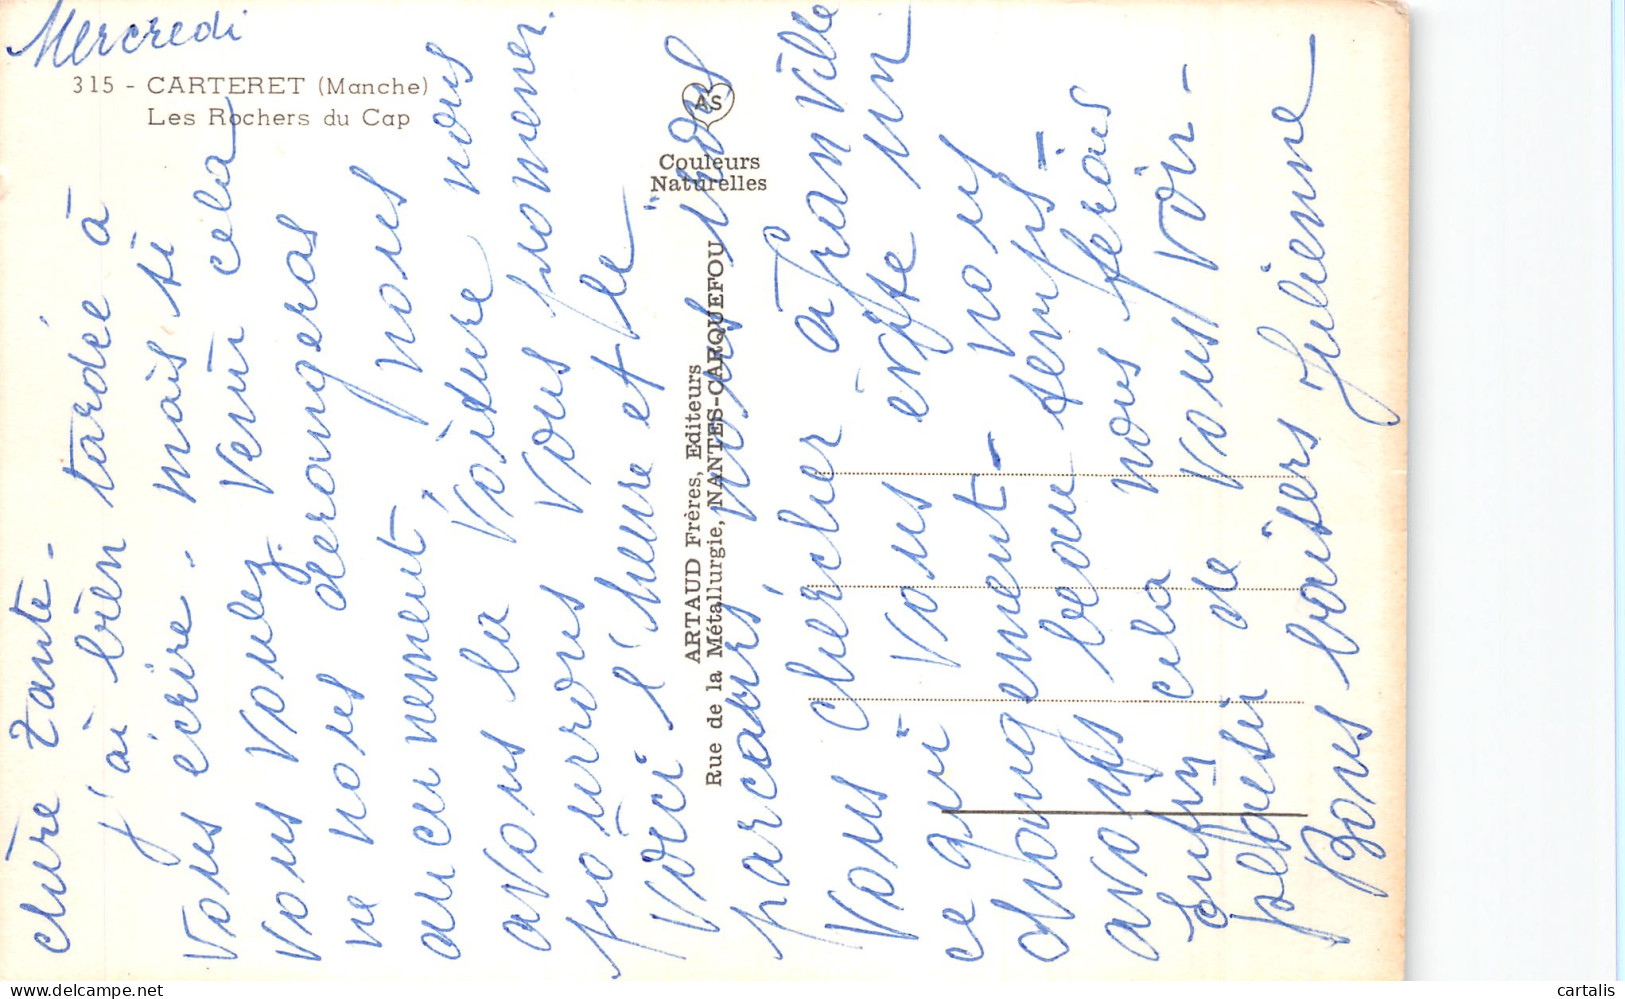 Mercredi
315 - CARTERET (Manche)
Les Rochers du Cap
AS
Couleurs
Naturelles
ARTAUD Frères, Editeurs
Rue de la Métallurgie, NANTES-CARQUEFOU
chère Tante -
j'ai bien tardée à
vous écrire - mais si
vous voulez venir cela
ne nous derangeras
aucunement, nous
avons la voiture nous
pourrons vous promener.
Voici l'heure et le
parcours nous irons
vous chercher à Granville
ce qui vous évite un
changement - nous
avons beau temps -
Enfin cela nous feras
plaisir de vous voir -
Bons baisers Julienne
cartalis